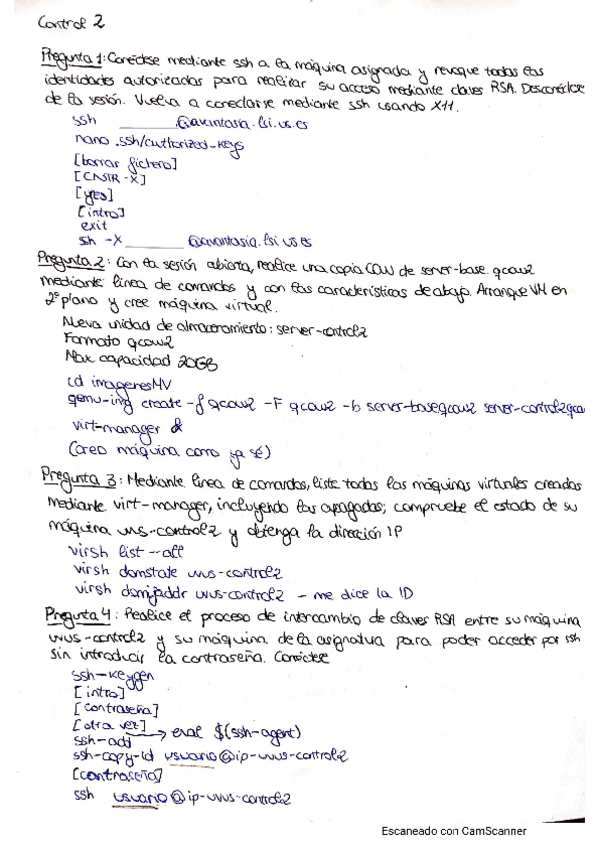 Control 2
Pregunta 1: Conéctese mediante ssh a la máquina asignada y revoque todas las
identidades autorizadas para realizar su acceso mediante claves RSA. Desconéctese
de la sesión. Vuelva a conectarse mediante ssh usando X11.
ssh ________@avantasia.lsi.us.es
nano .ssh/authorized-keys
[borrar fichero]
[CNTR-X]
[yes]
[intro]
exit
sh -X ________ @avantasia.lsi.us.es
Pregunta 2: Con la sesión abierta, realice una copia COW de server-base.qcow2
mediante línea de comandos y con las características de abajo. Arranque VM en
2º plano y cree máquina virtual.
Nueva unidad de almacenamiento: server-control2
Formato qcow2
Max capacidad 20GB
cd imagenesMV
qemu-img create -f qcow2 -F qcow2 -b server-base.qcow2 server-control2.qcow
virt-manager &
(creo máquina como ya sé)
Pregunta 3: Mediante línea de comandos, liste todas las máquinas virtuales creadas
mediante virt-manager, incluyendo las apagadas; compruebe el estado de su
máquina uvus-control2 y obtenga la dirección IP
virsh list --all
virsh domstate uvus-control2
virsh domifaddr uvus-control2 - me dice la ID
Pregunta 4: Realice el proceso de intercambio de claves RSA entre su máquina
uvus-control2 y su máquina de la asignatura para poder acceder por ssh
sin introducir la contraseña. Conéctese
ssh-keygen
[intro]
[contraseña]
[otra vez] → eval $(ssh-agent)
ssh-add
ssh-copy-id usuario@ip-uvus-control2
[contraseña]
ssh usuario@ip-uvus-control2
Escaneado con CamScanner